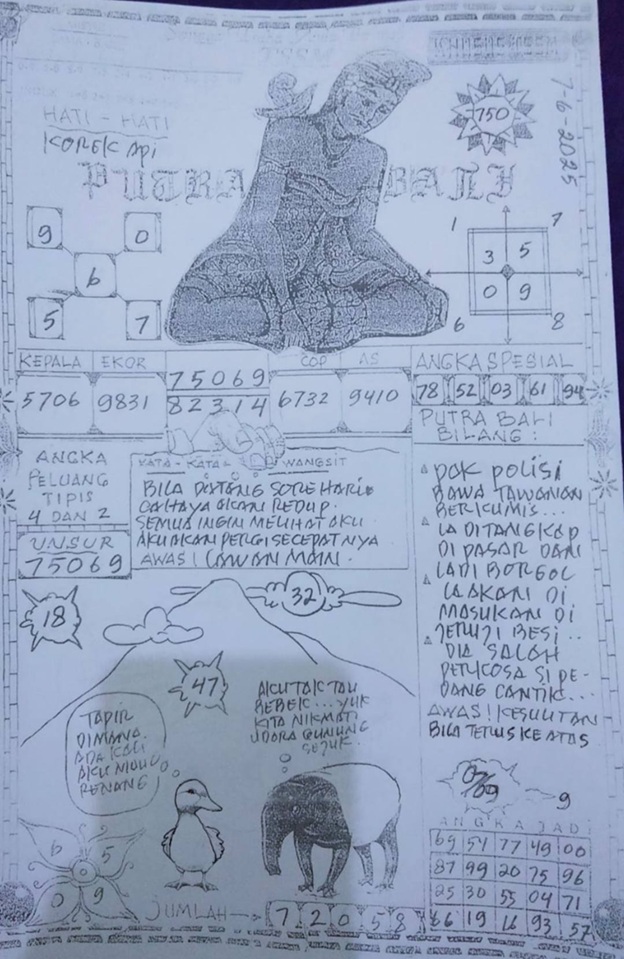 HATI - HATI
KOREK API
750
7-6-2025
PUTRA BALI
9 0
6
5 7
1 7
3 5
0 9
6 8
KEPALA EKOR
5706 9831
75069
82314
COP AS
6732 9410
ANGKA SPESIAL
78 52 03 61 94
PUTRA BALI
BILANG :
PAK POLISI
BAWA TAWANAN
BERKUMIS...
IA DITANGKAP
DI PASAR DAN
IADI BORGOL
IA AKAN DI
MASUKAN DI
JERUJI BESI..
DIA SALAH
PERKOSA SI PE-
DANG CANTIK...
AWAS! KESULITAN
BILA TERUS KE ATAS
ANGKA
PELUANG
TIPIS
4 DAN 2
UNSUR
75069
KATA - KATA WANGSIT
BILA DATANG SORE HARI
CAHAYA AKAN REDUP.
SEMUA INGIN MELIHAT AKU
AKU AKAN PERGI SECEPATNYA
AWAS! LAWAN MAIN.
18
32
47
TAPIR
DIMANA.
ADA KALI
AKU
RENANG!
AKU TAK TAU
BEBEK... YUK
KITA NIKMATI
UDARA GUNUNG
SEJUK.
6 5
0 9
JUMLAH
7 2 0 5 8
9
ANGKA JADI
65 54 77 49 00
87 99 20 75 96
25 30 55 04 71
66 19 16 93 57